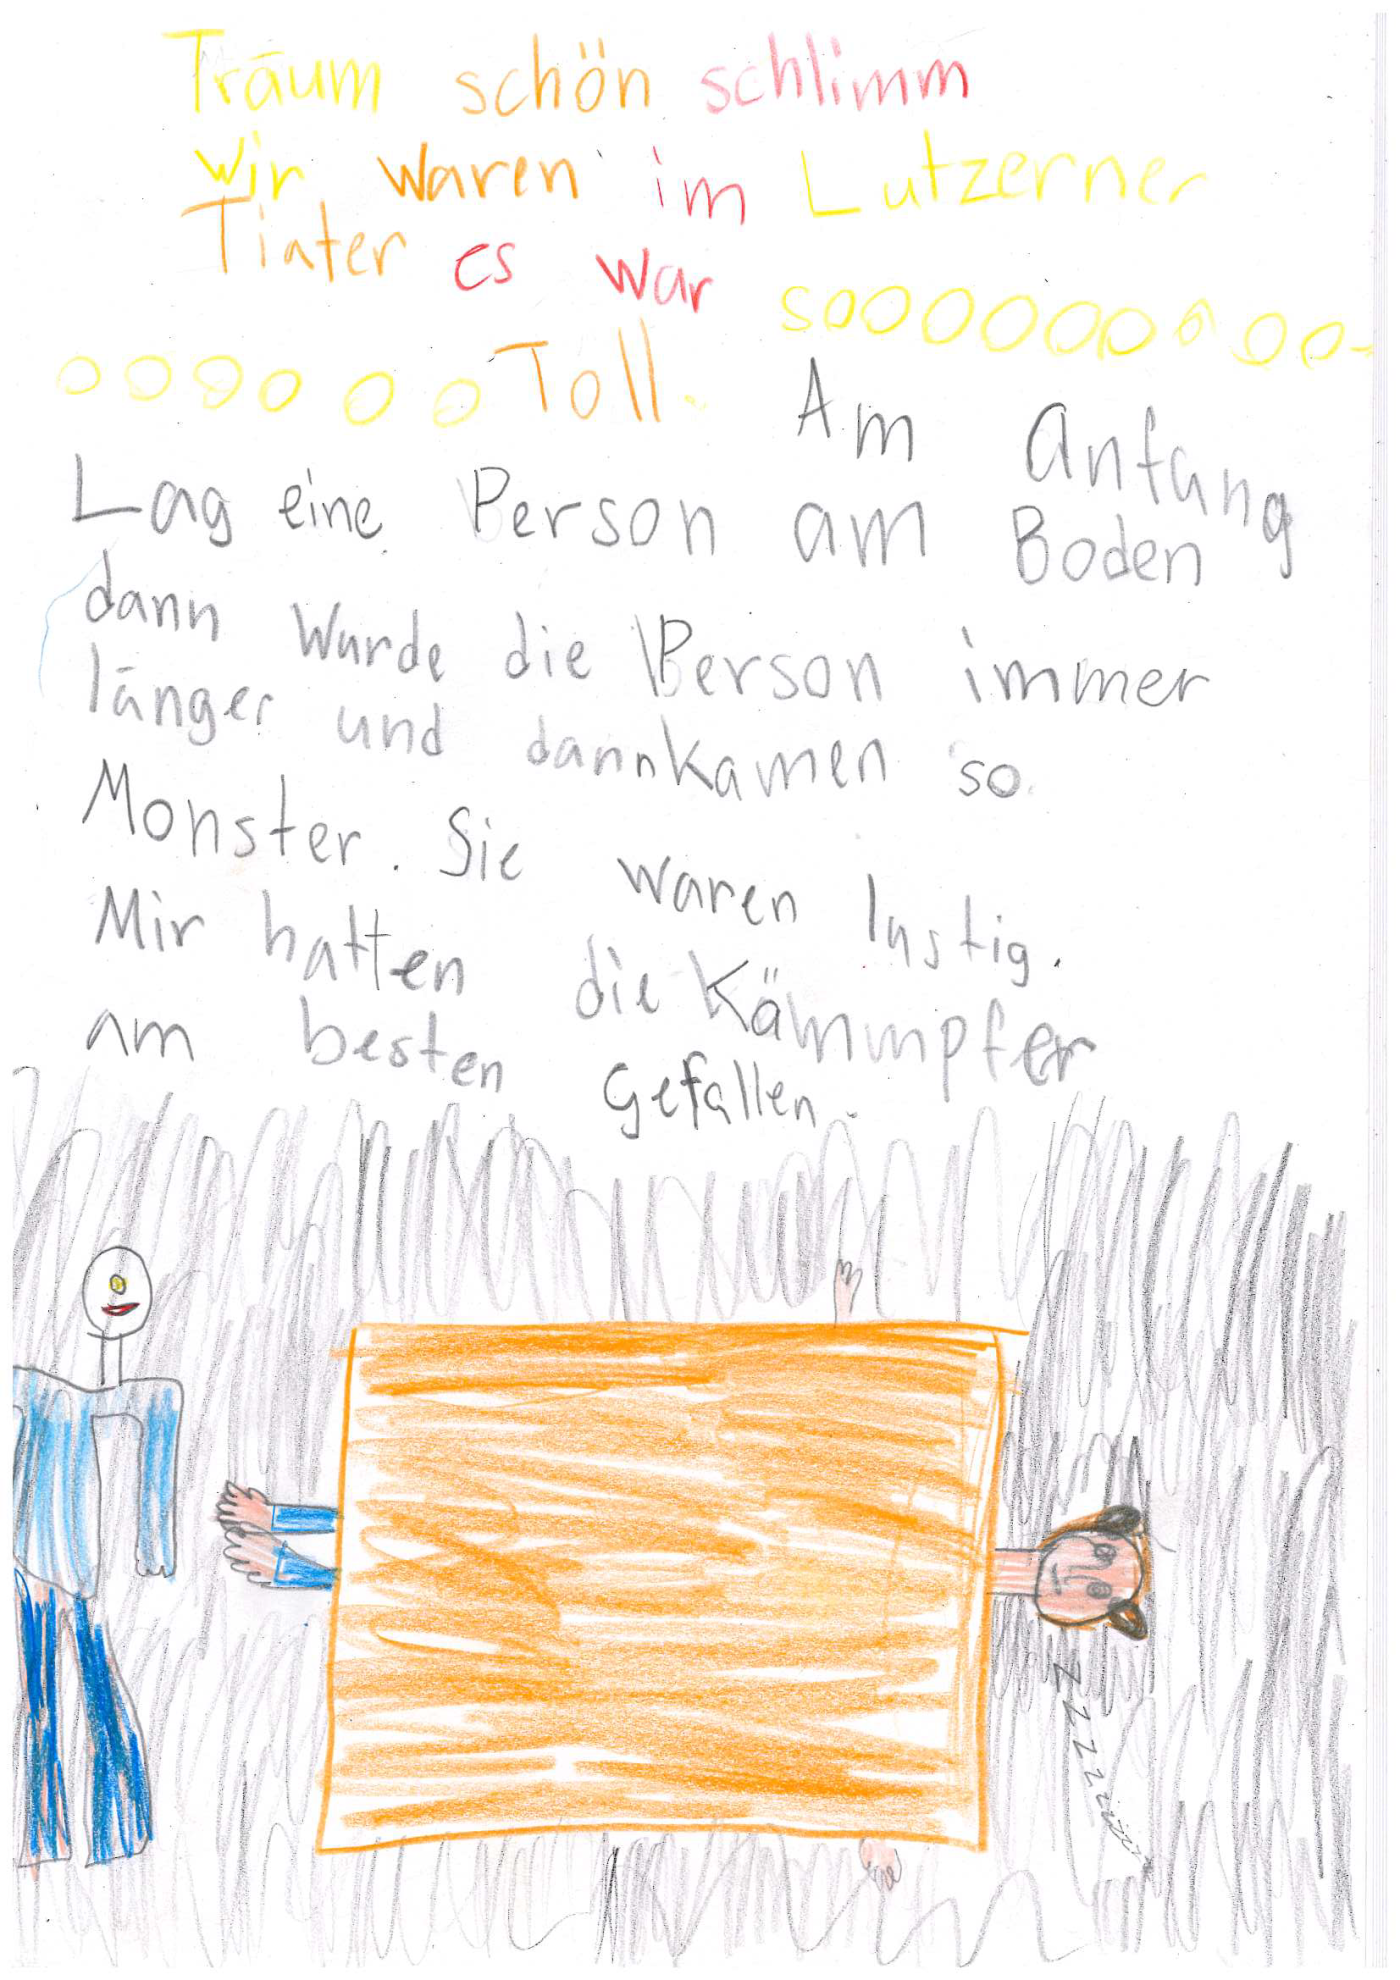 Träum schön schlimm
wir waren im Lutzerner
Tiater es war sooooooooooo-
oooooo Toll. Am Anfang
Lag eine Person am Boden
dann Wurde die Person immer
länger und dannkamen so
Monster. Sie waren lustig.
Mir hatten die Kämmpfer
am besten Gefallen.
zzzzzzzzz